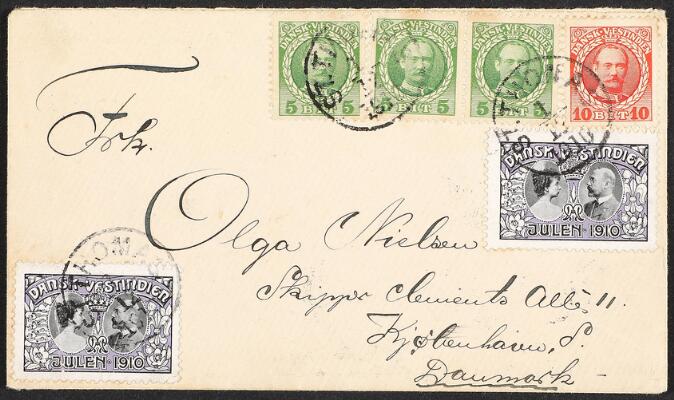 DANSK-VESTINDIEN DANSK-VESTINDIEN DANSK-VESTINDIEN DANSK-VESTINDIEN
5 BIT 5 5 BIT 5 5 BIT 5 10 BIT 10
ST. THOMAS
1910
Frk.
DANSK-VESTINDIEN
JULEN 1910
Olga Nielsen
Skipper Clements Allé 11.
Kjøbenhavn, S.
Danmark
THOMAS
DANSK-VESTINDIEN
JULEN 1910